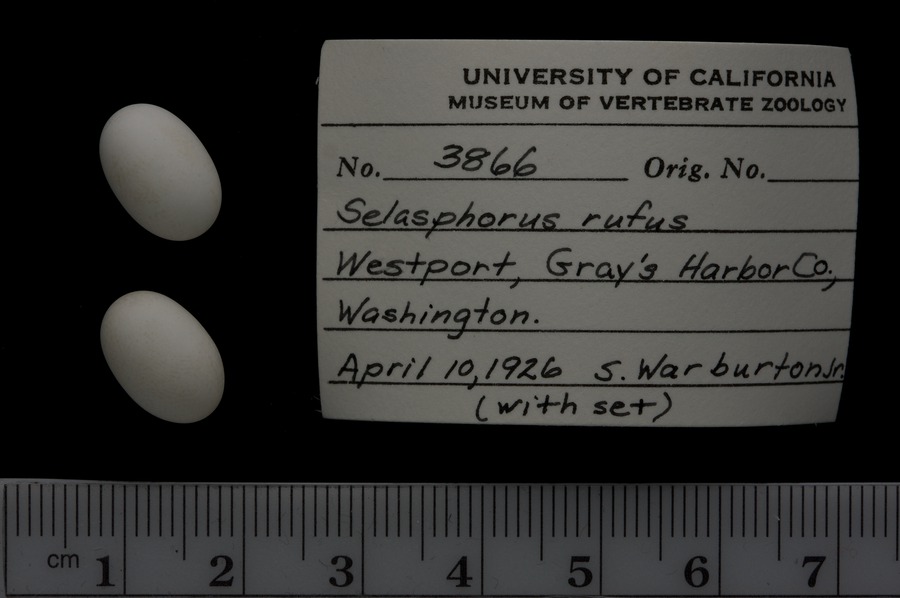 UNIVERSITY OF CALIFORNIA
MUSEUM OF VERTEBRATE ZOOLOGY
No. 3866 Orig. No.
Selasphorus rufus
Westport, Gray's Harbor Co.,
Washington.
April 10, 1926 S. Warburton Jr.
(with set)
cm 1 2 3 4 5 6 7